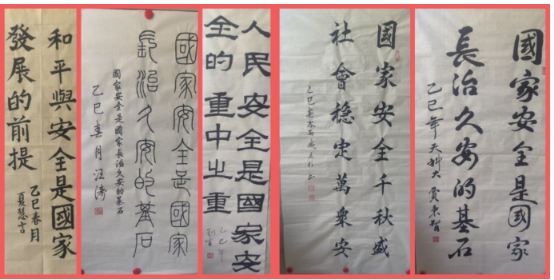 和平與安全是國家
發展的前提
乙巳春月
國家安全是國家
長治久安的基石
國家安全是國家長治久安的基石
乙巳春月汪涛
人民安全是國家安
全的重中之重
乙巳年
國家安全千秋盛
社會稳定萬衆安
乙巳
國家安全是國家
長治久安的基石
乙巳年天科大